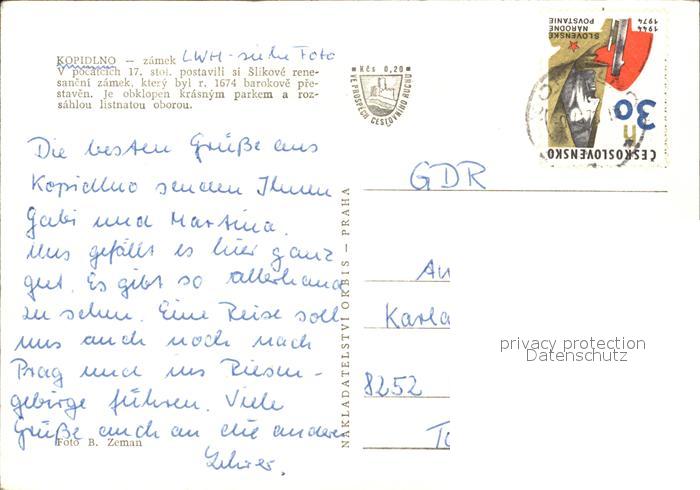 KOPIDLNO — zámek LWH - siehe Foto
V počátcích 17. stol. postavili si Šlikové rene-
sanční zámek, který byl r. 1674 barokově pře-
stavěn. Je obklopen krásným parkem a roz-
sáhlou listnatou oborou.
Kčs 0,20
VE PROSPĚCH CESTOVNÍHO RUCHU
1944
1974
SLOVENSKÉ
NÁRODNÉ
POVSTANIE
30
h
ČESKOSLOVENSKO
Die besten Grüße aus
Kopidlno senden Ihnen
Gabi und Martina.
Uns gefällt es hier ganz
gut. Es gibt so allerhand
zu sehen. Eine Reise soll
uns auch noch nach
Prag und ins Riesen-
gebirge führen. Viele
Grüße auch an die anderen
Lehrer.
Foto B. Zeman
NAKLADATELSTVÍ ORBIS — PRAHA
GDR
An
Karla
8252
privacy protection
Datenschutz